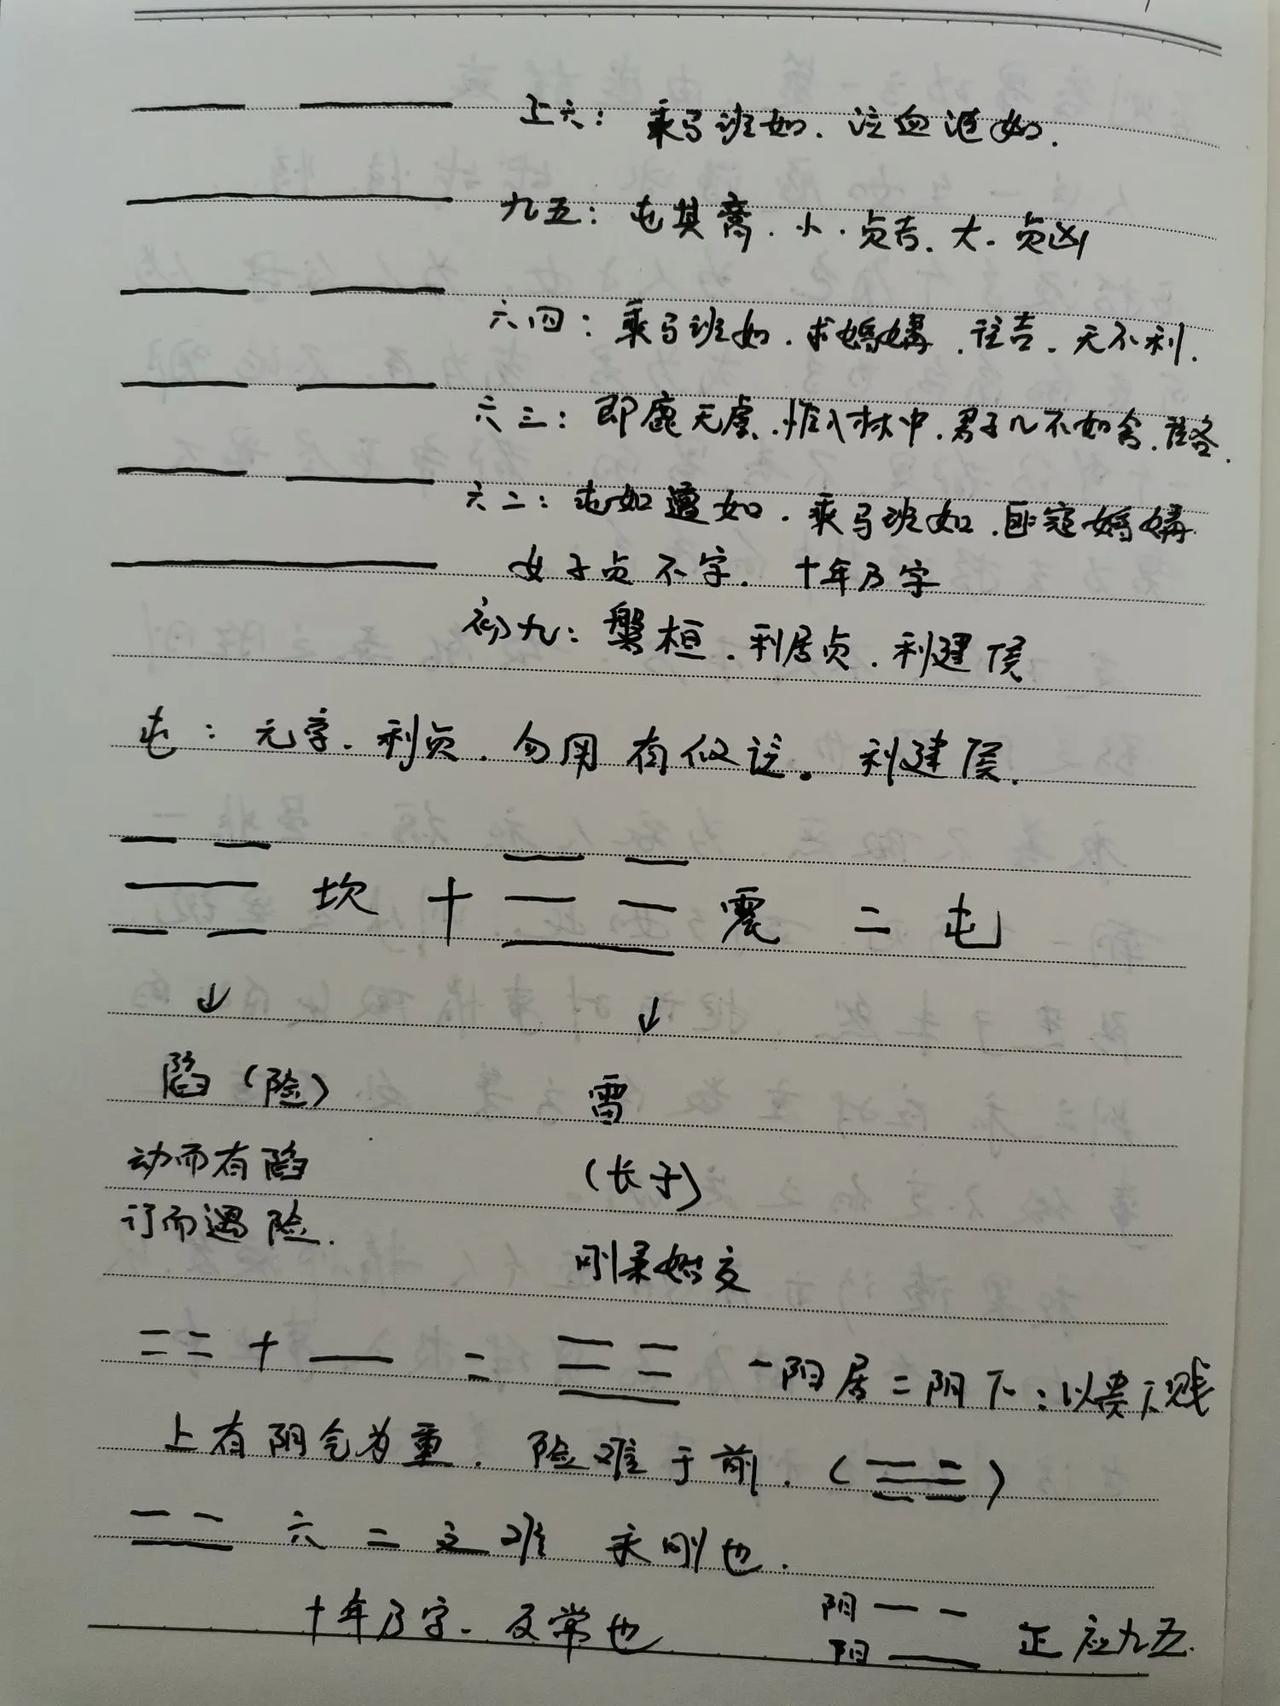 上六：乘马班如．泣血涟如．
九五：屯其膏．小．贞吉．大．贞凶
六四：乘马班如．求婚媾．往吉．无不利．
六三：即鹿无虞．惟入林中．君子几不如舍．往吝．
六二：屯如邅如．乘马班如．匪寇婚媾
女子贞不字．十年乃字
初九：磐桓．利居贞．利建侯
屯：元亨．利贞．勿用有攸往。利建侯．
坎 十 震 = 屯
↓ ↓
陷（险） 雷
动而有陷 （长子）
行而遇险．
刚柔始交
十 = 一阳居二阴下：以贵下贱
上有阴气为重．险难于前．（ ）
六二之难 乘刚也．
十年乃字．反常也 阴
阳 正应九五．